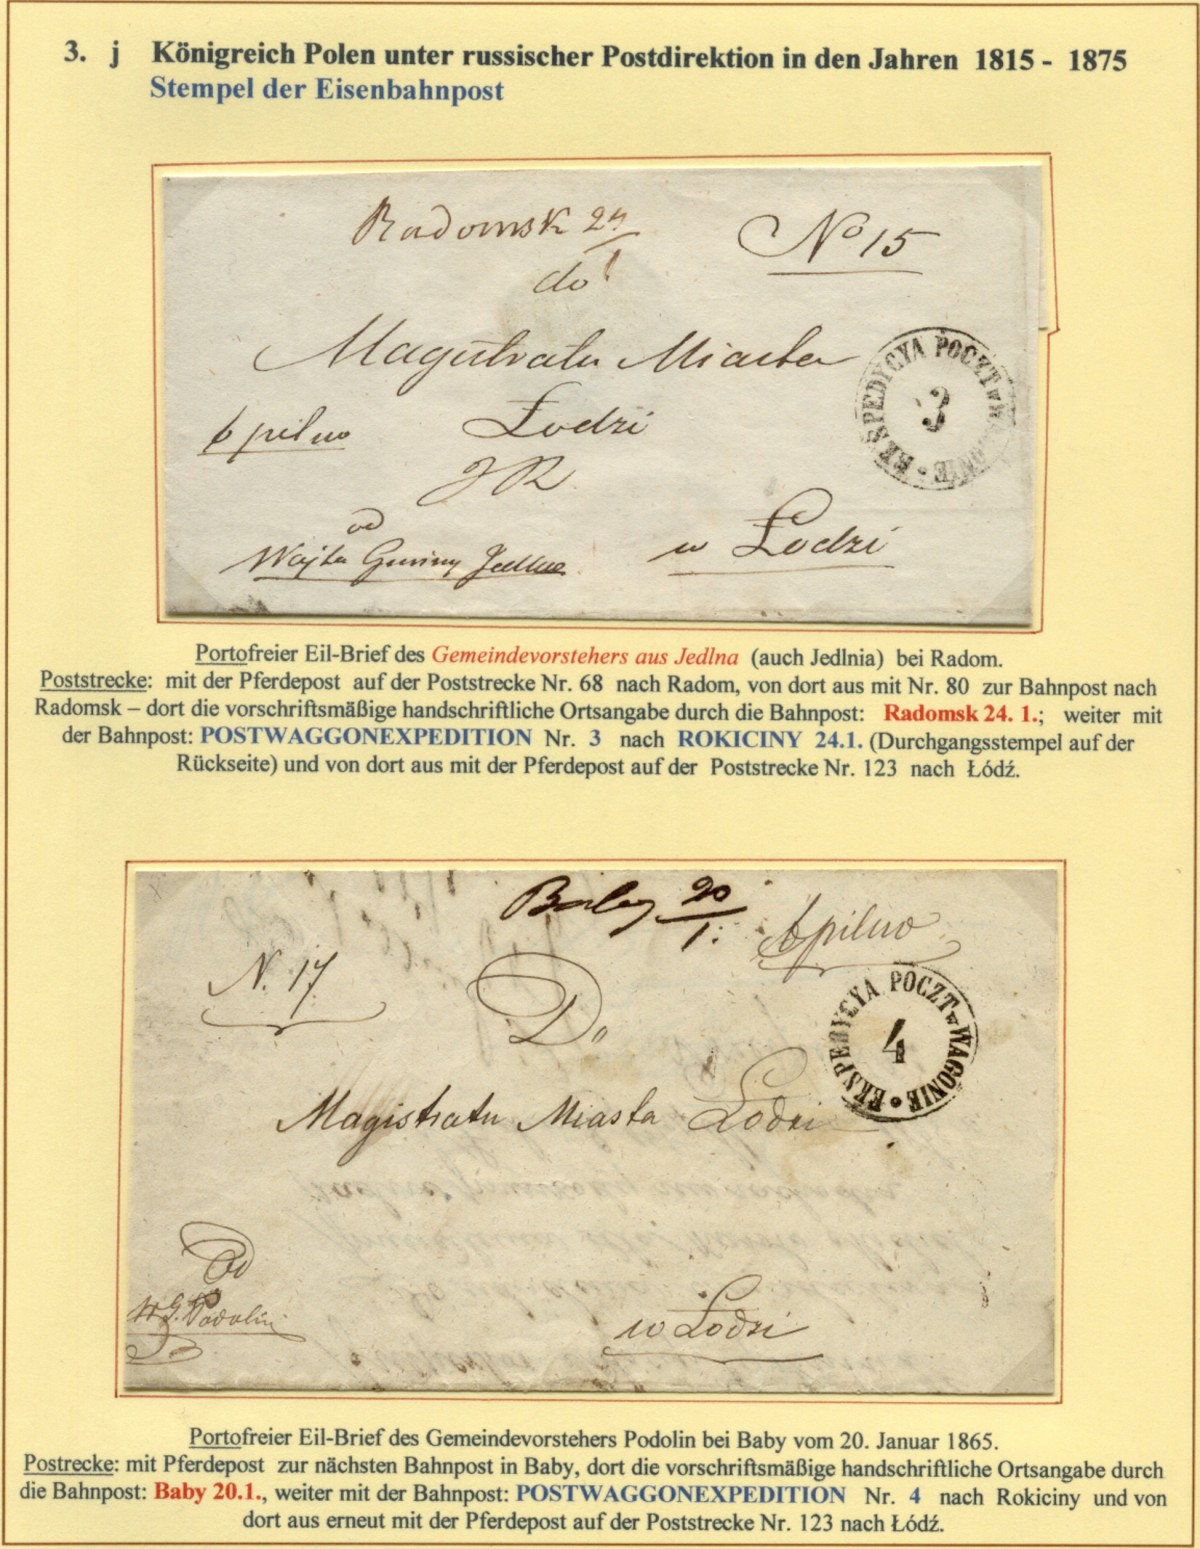 3. j Königreich Polen unter russischer Postdirektion in den Jahren 1815 - 1875
Stempel der Eisenbahnpost
Radomsk 24/1
No 15
do
Magistratu Miasta
EKSPEDYCYA POCZT w WAGONIE
3
b pilno
Łodzi
od
Wójta Gminy Jedlna
w Łodzi
Portofreier Eil-Brief des Gemeindevorstehers aus Jedlna (auch Jedlnia) bei Radom.
Poststrecke: mit der Pferdepost auf der Poststrecke Nr. 68 nach Radom, von dort aus mit Nr. 80 zur Bahnpost nach
Radomsk – dort die vorschriftsmäßige handschriftliche Ortsangabe durch die Bahnpost: Radomsk 24. 1.; weiter mit
der Bahnpost: POSTWAGGONEXPEDITION Nr. 3 nach ROKICINY 24.1. (Durchgangsstempel auf der
Rückseite) und von dort aus mit der Pferdepost auf der Poststrecke Nr. 123 nach Łódź.
Baby 20/1.
b pilno
N. 17
Do
EKSPEDYCYA POCZT w WAGONIE
4
Magistratu Miasta Łodzi
Od
W. G. Podolin
w Łodzi
Portofreier Eil-Brief des Gemeindevorstehers Podolin bei Baby vom 20. Januar 1865.
Postrecke: mit Pferdepost zur nächsten Bahnpost in Baby, dort die vorschriftsmäßige handschriftliche Ortsangabe durch
die Bahnpost: Baby 20.1., weiter mit der Bahnpost: POSTWAGGONEXPEDITION Nr. 4 nach Rokiciny und von
dort aus erneut mit der Pferdepost auf der Poststrecke Nr. 123 nach Łódź.